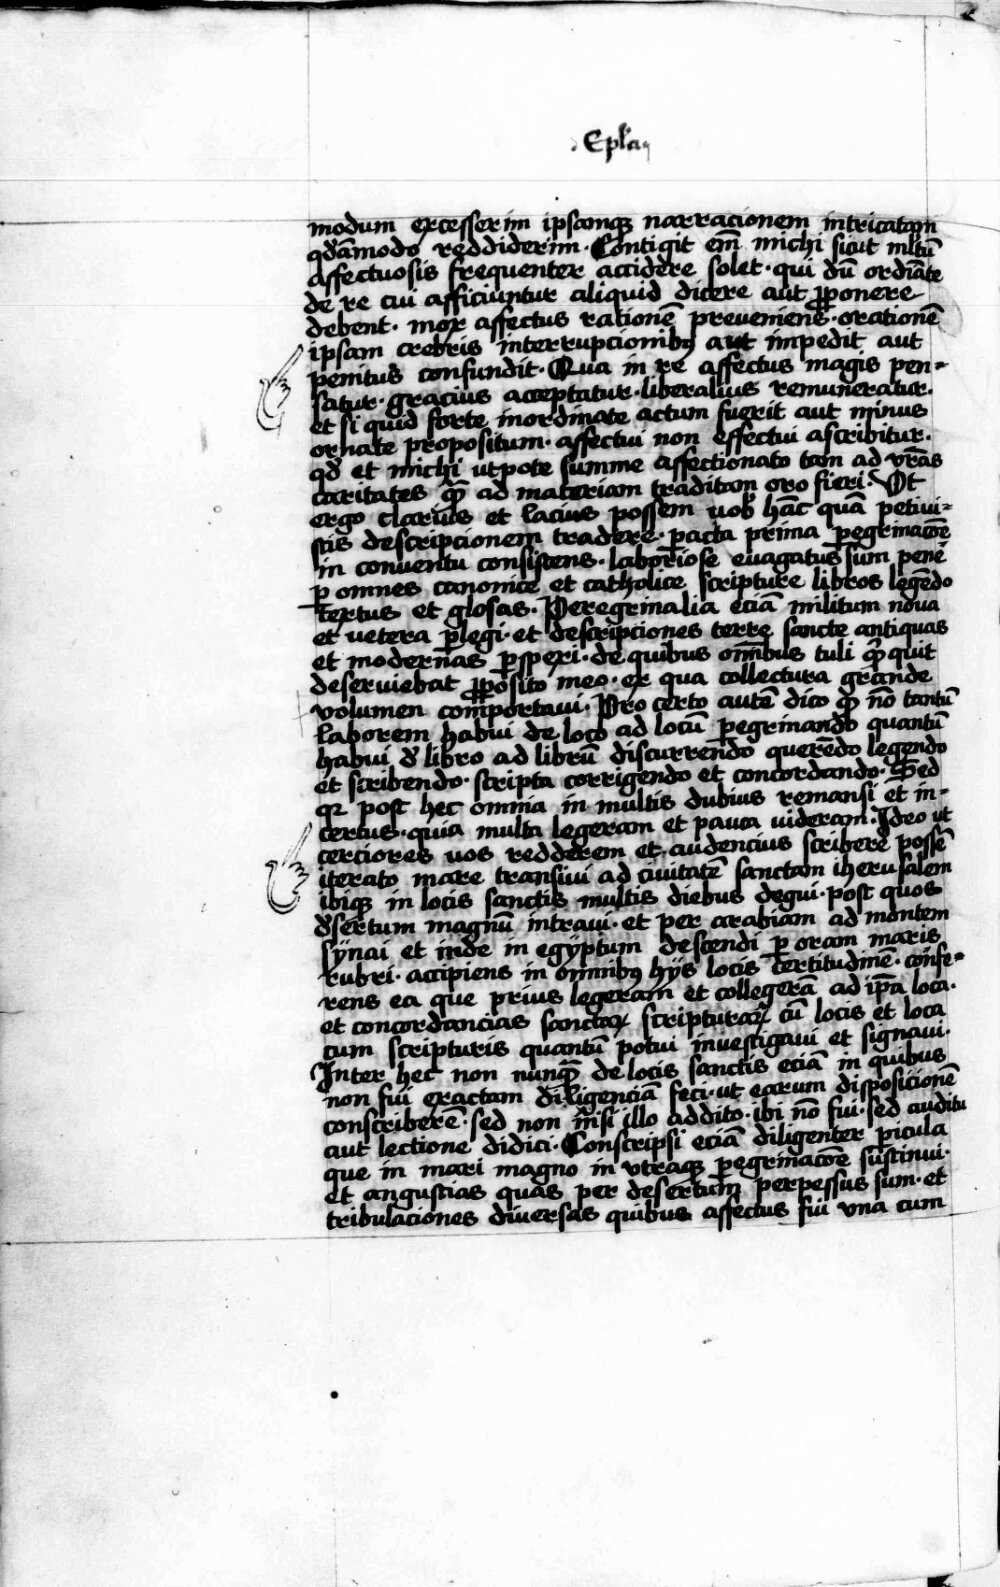 Epl̄a
modum excesserim ipsamqꝫ narracionem intricatam
qd̄āmodo reddiderim · Contigit em̄ michi sicut ml̄tū
affectuosis frequenter accidere solet · qui dū ordīate
de re cui afficiuntur aliquid dicere aut ꝓponere
debent · mox affectus rationē preveniens · orationē
ipsam crebris interrupcionibꝰ aut impedit aut
penitus confundit · Qua in re affectus magis pen=
satur · gracius acceptatur · liberalius remuneratur ·
et si quid forte inordinate actum fuerit aut minus
ornate propositum · affectui non effectui ascribitur ·
qd̄ et michi utpote summe affectionato tam ad vr̄as
caritates qͣ̄ ad materiam traditam oro fieri · Ut
ergo clarius et lacius possem uob̄ hāc quā petiui=
stis descripcionem tradere · pacta prima ꝑegrinacōe
in conventu consistens · laboriose euagatus sum pene
ꝑ omnes canonice et catholice scripture libros legēdo
textus et glosas · Peregrinalia eciā militum nova
et vetera ꝑlegi · et descripciones terre sancte antiquas
et modernas ꝑspexi · de quibus om̄ibus tuli qͣ̄ quit
deserviebat ꝓposito meo · ex qua collectura grande
volumen comportaui · Pro certo autē dico qͣ̄ nō tantū
laborem habui de loco ad locū ꝑegrinando quantū
habui d̄ libro ad librū discurrendo querēdo legendo
et scribendo · scripta corrigendo et concordando · Sed
qꝛ post hec omnia in multis dubius remansi et in=
certus · quia multa legeram et pauca videram · Ideo ut
cerciores vos redderem et audencius scribere possē
iterato mare transiui ad ciuitatē sanctam iherusalem
ibiqꝫ in locis sanctis multis diebus degui · post quos
d̄sertum magnū intraui · et per arabiam ad montem
synai et inde in egyptum descendi ꝑ oram maris
rubri · accipiens in omnibꝰ hÿs locis certitudinē · confe=
rens ea que prius legeram et collegerā ad ip̄a loca ·
et concordancias sanctaꝝ scripturaꝝ cū locis et loca
cum scripturis quantū potui investigaui et signaui ·
Inter hec non nunqͣ̄ de locis sanctis eciā in quibus
non fui exactam diligenciā feci · ut earum disposicionē
conscriberē · sed non nisi illo addito · ibi nō fui · sed auditu
aut lectione didici · Conscripsi eciā diligenter ꝑicula
que in mari magno in utraqꝫ ꝑegrinacōe sustinui ·
et angustias quas per desertum perpessus sum · et
tribulaciones diversas quibus affectus fui una cum